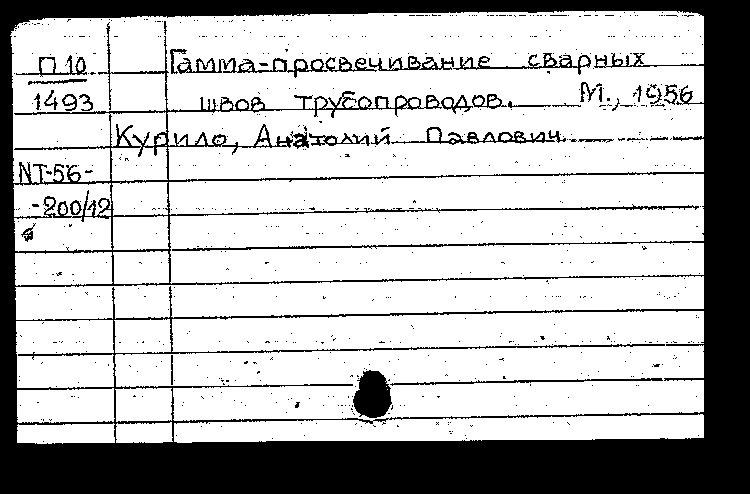 П 10 Гамма-просвечивание сварных
1493 швов трубопроводов. М., 1956
Курило, Анатолий Павлович
NT-56-
-200/12